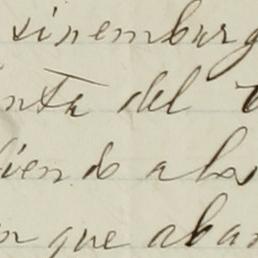 sinemburg
nta del
iendo a los
n que aban